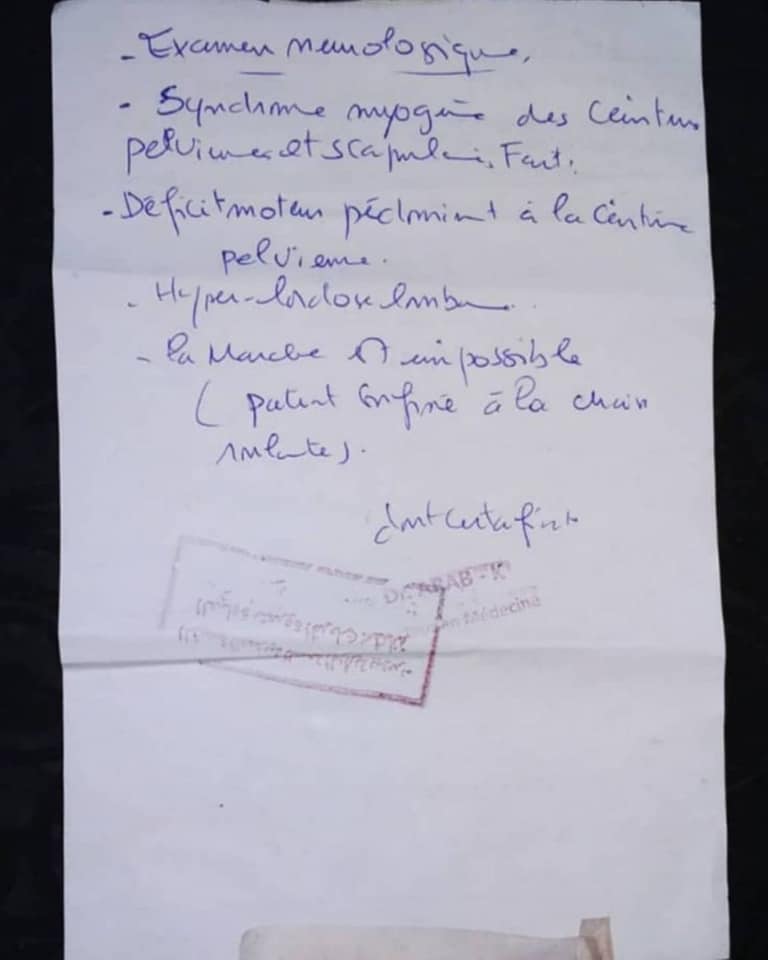 - Examen neurologique.
- Syndrome myogène des Ceintures
pelvienne et scapulaire. Fait.
- Déficit moteur prédominant à la Ceinture
pelvienne.
- Hyper-lordose lombaire.
- la Marche est impossible
( patient Confiné à la chaise
roulante).
dont Certificat
Dr. ARAB - K
en Médecine